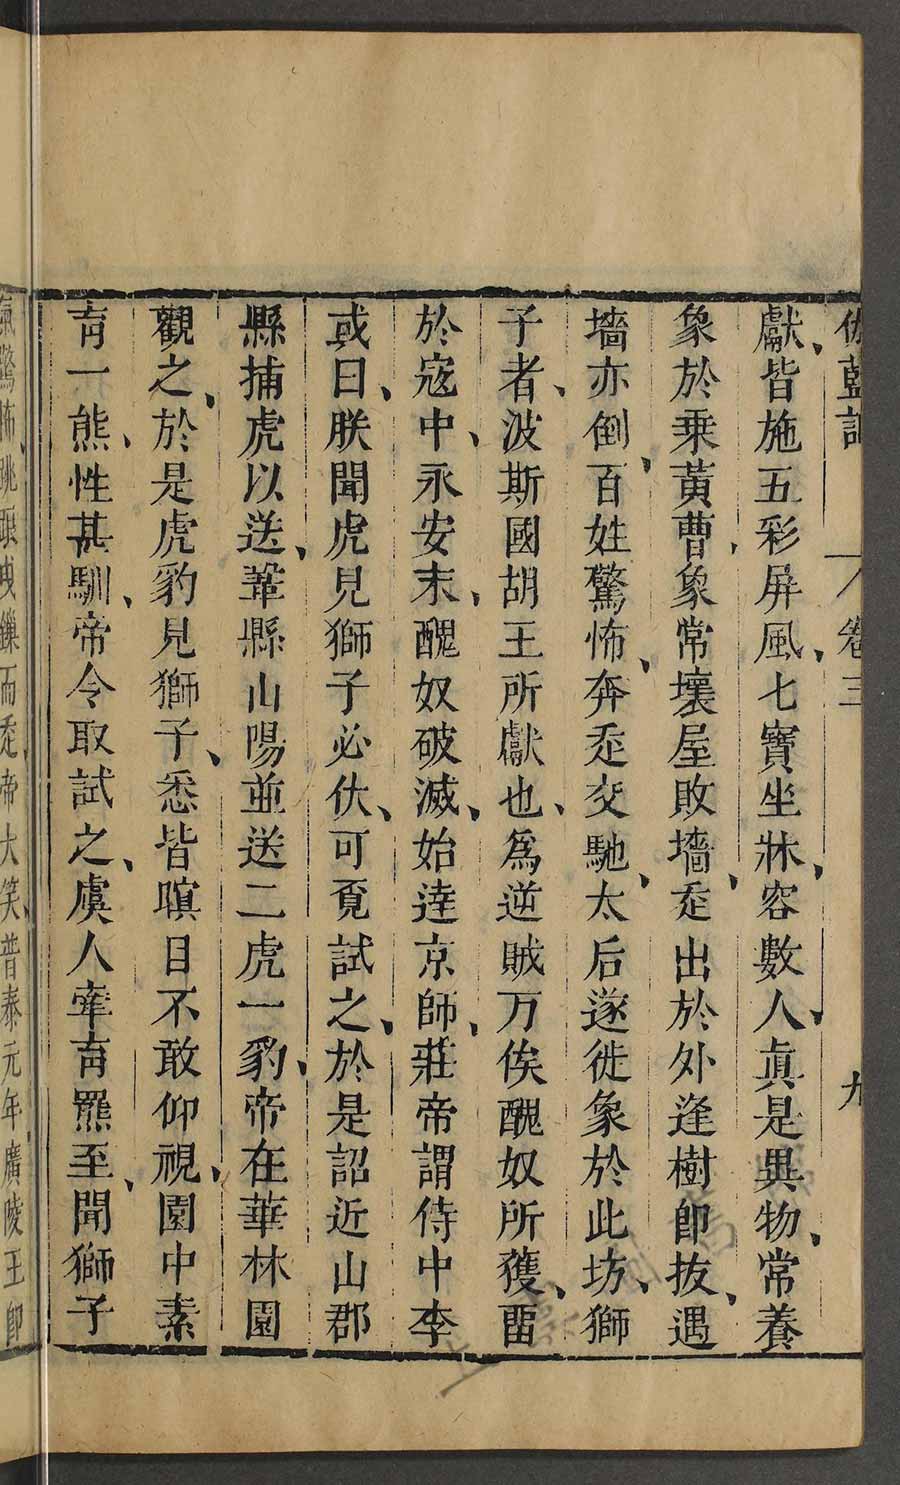 伽藍記 卷三 九
獻、皆施五彩屏風、七寶坐牀、容數人、真是異物、常養
象於乗黃曹、象常壞屋敗墻、走出於外逢樹卽拔、遇
墻亦倒、百姓驚怖、奔走交馳、太后遂徙象於此坊、獅
子者、波斯國胡王所獻也、為逆賊万俟醜奴所獲、畱
於寇中、永安末、醜奴破滅、始達京師、莊帝謂侍中李
或曰、朕聞虎見獅子必伏、可覓試之、於是詔近山郡
縣捕虎以送、鞏縣山陽並送二虎一豹、帝在華林園
觀之、於是虎豹見獅子、悉皆瞋目不敢仰視、園中素
盲一熊、性甚馴、帝令取試之、虞人牽盲羆至、聞獅子
氣驚怖、跳踉曳鏁而走、帝大笑、普泰元年、廣陵王卽